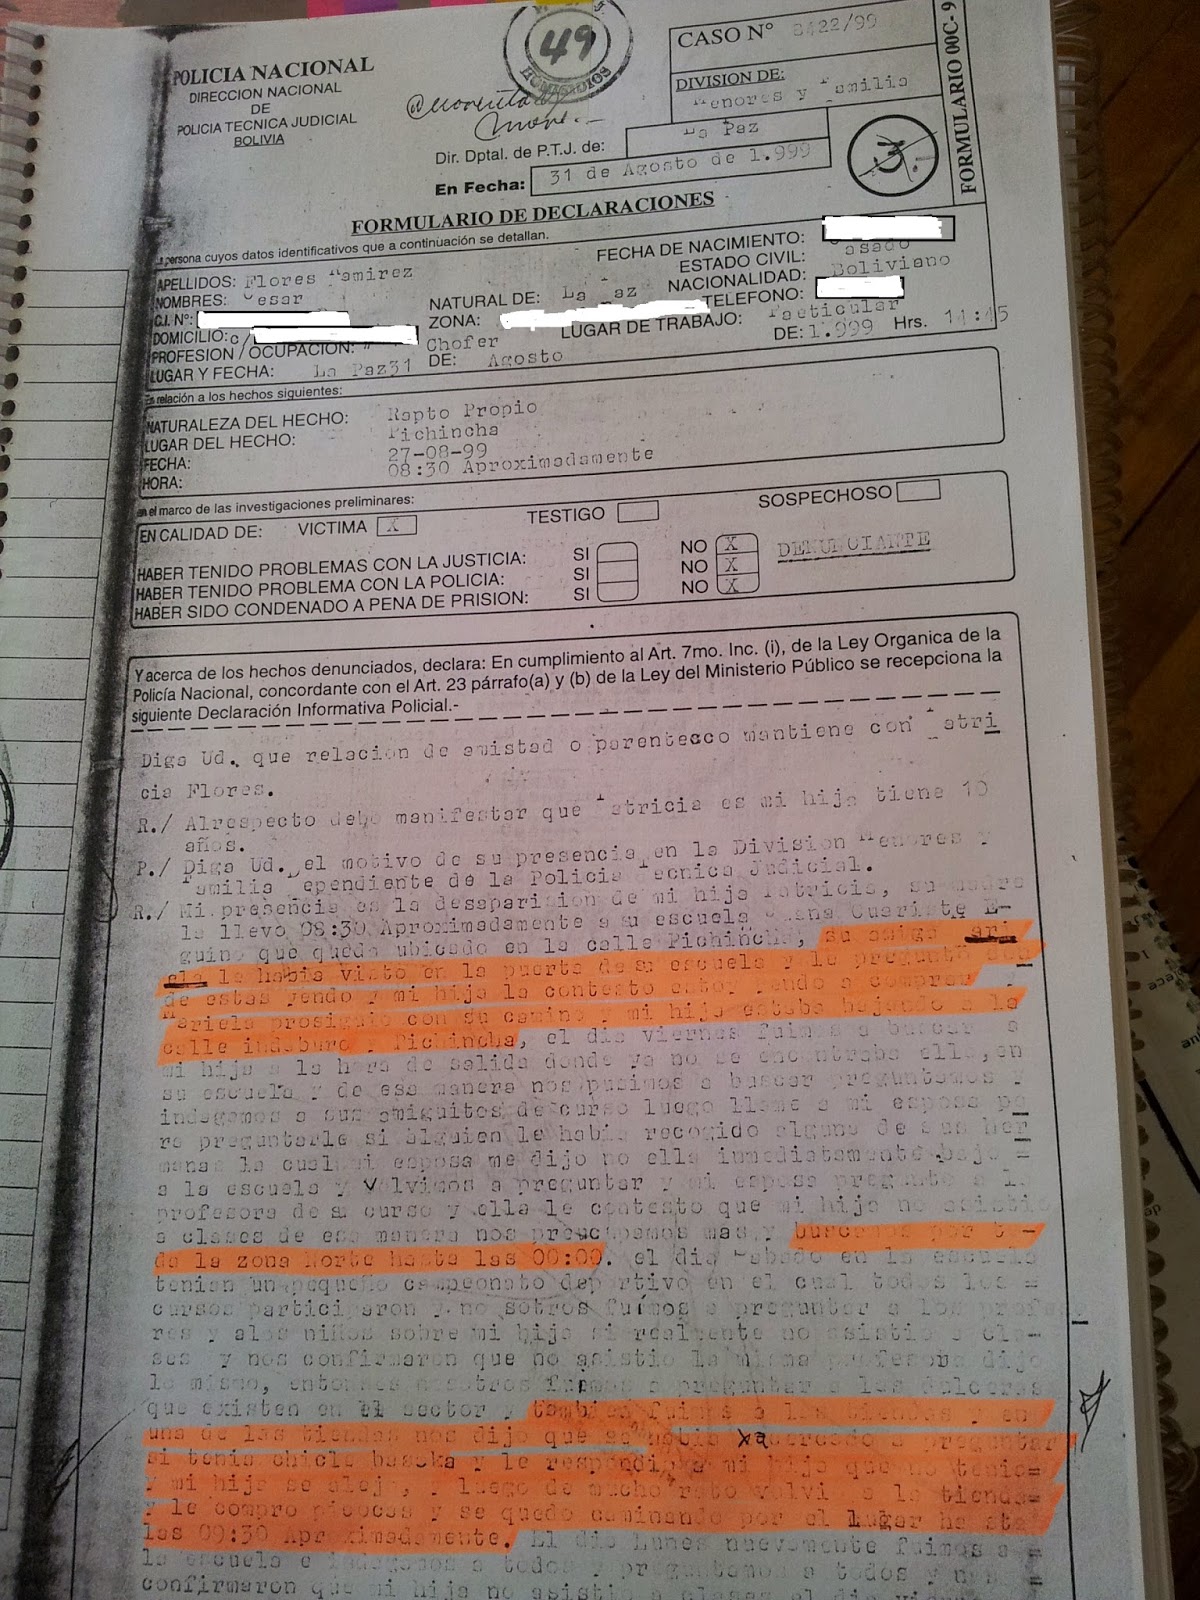 49
HOMICIDIOS
POLICIA NACIONAL
DIRECCION NACIONAL
DE
POLICIA TECNICA JUDICIAL
BOLIVIA
CASO N° 8422/99
DIVISION DE:
Menores y Familia
FORMULARIO 00C- 9
Dir. Dptal. de P.T.J. de: La Paz
En Fecha: 31 de Agosto de 1.999
FORMULARIO DE DECLARACIONES
La persona cuyos datos identificativos que a continuación se detallan.
APELLIDOS: Flores Ramirez
NOMBRES: Cesar
C.I. N°:
DOMICILIO: c/
PROFESION / OCUPACION: Chofer
LUGAR Y FECHA: La Paz 31 DE: Agosto DE: 1.999 Hrs. 14:45
FECHA DE NACIMIENTO:
ESTADO CIVIL: Casado
NATURAL DE: La Paz NACIONALIDAD: Boliviano
ZONA: TELEFONO:
LUGAR DE TRABAJO: Particular
En relación a los hechos siguientes:
NATURALEZA DEL HECHO: Rapto Propio
LUGAR DEL HECHO: Pichincha
FECHA: 27-08-99
HORA: 08:30 Aproximadamente
en el marco de las investigaciones preliminares:
EN CALIDAD DE: VICTIMA X TESTIGO SOSPECHOSO
HABER TENIDO PROBLEMAS CON LA JUSTICIA: SI NO X DENUNCIANTE
HABER TENIDO PROBLEMA CON LA POLICIA: SI NO X
HABER SIDO CONDENADO A PENA DE PRISION: SI NO X
Y acerca de los hechos denunciados, declara: En cumplimiento al Art. 7mo. Inc. (i), de la Ley Organica de la
Policía Nacional, concordante con el Art. 23 párrafo(a) y (b) de la Ley del Ministerio Público se recepciona la
siguiente Declaración Informativa Policial.-
Diga Ud. que relacion de amistad o parentesco mantiene con Patri
cia Flores.
R./ Alrespecto debo manifestar que Patricia es mi hija tiene 10
años.
P./ Diga Ud. el motivo de su presencia en la Division Menores y
Familia dependiente de la Policia Tecnica Judicial.
R./ Mi presencia es la desaparicion de mi hija Patricia, su madre
la llevo 08:30 Aproximadamente a su escuela
guino que queda ubicado en la calle Pichincha, su amiga
la habia visto en la puerta de su escuela y le pregunto don
de estas yendo y mi hija la contesto estoy yendo a comprar y
Mariela prosiguio con su camino y mi hija estaba bajando a la
calle indaburo y Pichincha, el dia viernes fuimos a buscar a
mi hija a la hora de salida donde ya no se encontraba ella, en
su escuela y de esa manera nos pusimos a buscar preguntamos y
indagamos a sus amiguitos de curso luego llame a mi esposa pa
ra preguntarle si alguien le habia recogido alguna de sus her
manas la cual mi esposa me dijo no ella inmediatamente bajo =
a la escuela y volvimos a preguntar y mi esposa pregunto a la
profesora de su curso y ella le contesto que mi hija no asistio
a clases de esa manera nos preocupamos mas y buscamos por to-
da la zona Norte hasta las 00:00. el dia Sabado en la escuela
tenian un pequeño campeonato deportivo en el cual todos los =
cursos participaron y no sotros fuimos a preguntar a los profe
res y alos niños sobre mi hija si realmente no asistio a cla-
ses y nos confirmaron que no asistio la misma profesora dijo
lo mismo, entonces nosotros fuimos a preguntar a las dulceras
que existen en el sector y tambien fuimos a las tiendas y en
una de las tiendas nos dijo que se habia acercado a preguntar
si tenia chicle basoka y le respondio a mi hija que no tenia=
y mi hija se alejo, y luego de mucho rato volvi a la tienda=
y le compro pipocas y se quedo caminando por el lugar ha sta
las 09:30 Aproximadamente. El dia Lunes nuevamente fuimos a =
la escuela e indagamos a todos y preguntamos a todos y nos =
confirmaron que mi hija no asistio a clases el dia viernes